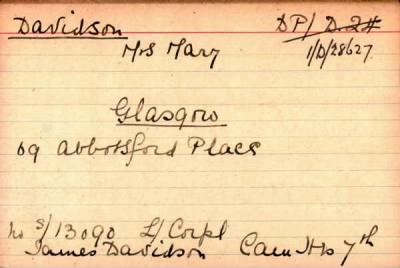 Davidson DP/ D.2H
Mrs Mary 1/D/28627.
Glasgow
69 Abbotsford Place
No S/13090 L/Corpl
James Davidson Cam Hrs 7th